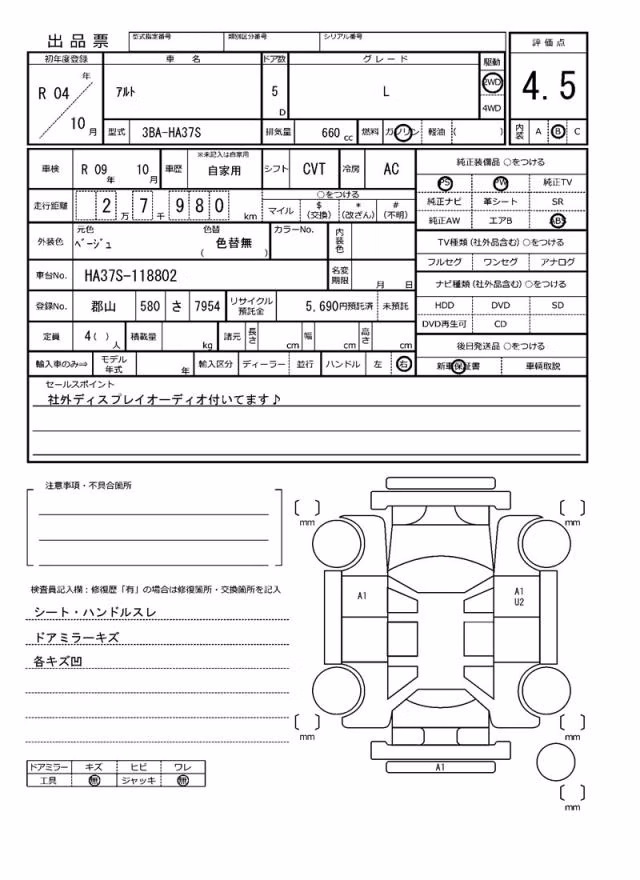 出品票 型式指定番号 類別区分番号 シリアル番号 評価点
初年度登録 車名 ドア数 グレード 駆動
R 04 年 10 月 ｱﾙﾄ 5 D L 2WD 4WD 4.5
型式 3BA-HA37S 排気量 660 cc 燃料 ガソリン 軽油 ( ) 内装 A B C
車検 R 09 年 10 月 車歴 ※未記入は自家用 自家用 シフト CVT 冷房 AC 純正装備品 ○をつける
PS PW 純正TV
走行距離 2 万 7 千 9 8 0 km ○をつける マイル $ (交換) * (改ざん) # (不明) 純正ナビ 革シート SR
純正AW エアB ABS
外装色 元色 ﾍﾞｰｼﾞｭ 色替 ( 色替無 ) カラーNo. 内装色 TV種類 (社外品含む) ○をつける
フルセグ ワンセグ アナログ
車台No. HA37S-118802 名変期限 月 日 ナビ種類 (社外品含む) ○をつける
登録No. 郡山 580 さ 7954 リサイクル預託金 5,690円預託済 未預託 HDD DVD SD
DVD再生可 CD
定員 4( ) 人 積載量 kg 諸元 長さ cm 幅 cm 高さ cm 後日発送品 ○をつける
輸入車のみ⇨ モデル年式 年 輸入区分 ディーラー 並行 ハンドル 左 右 新車保証書 車輌取説
セールスポイント
社外ディスプレイオーディオ付いてます♪
注意事項・不具合箇所
mm mm
検査員記入欄：修復歴「有」の場合は修復箇所・交換箇所を記入
シート・ハンドルスレ
ドアミラーキズ
各キズ凹
A1 A1
U2
mm mm
A1
mm
ドアミラー キズ ヒビ ワレ
工具 無 ジャッキ 無